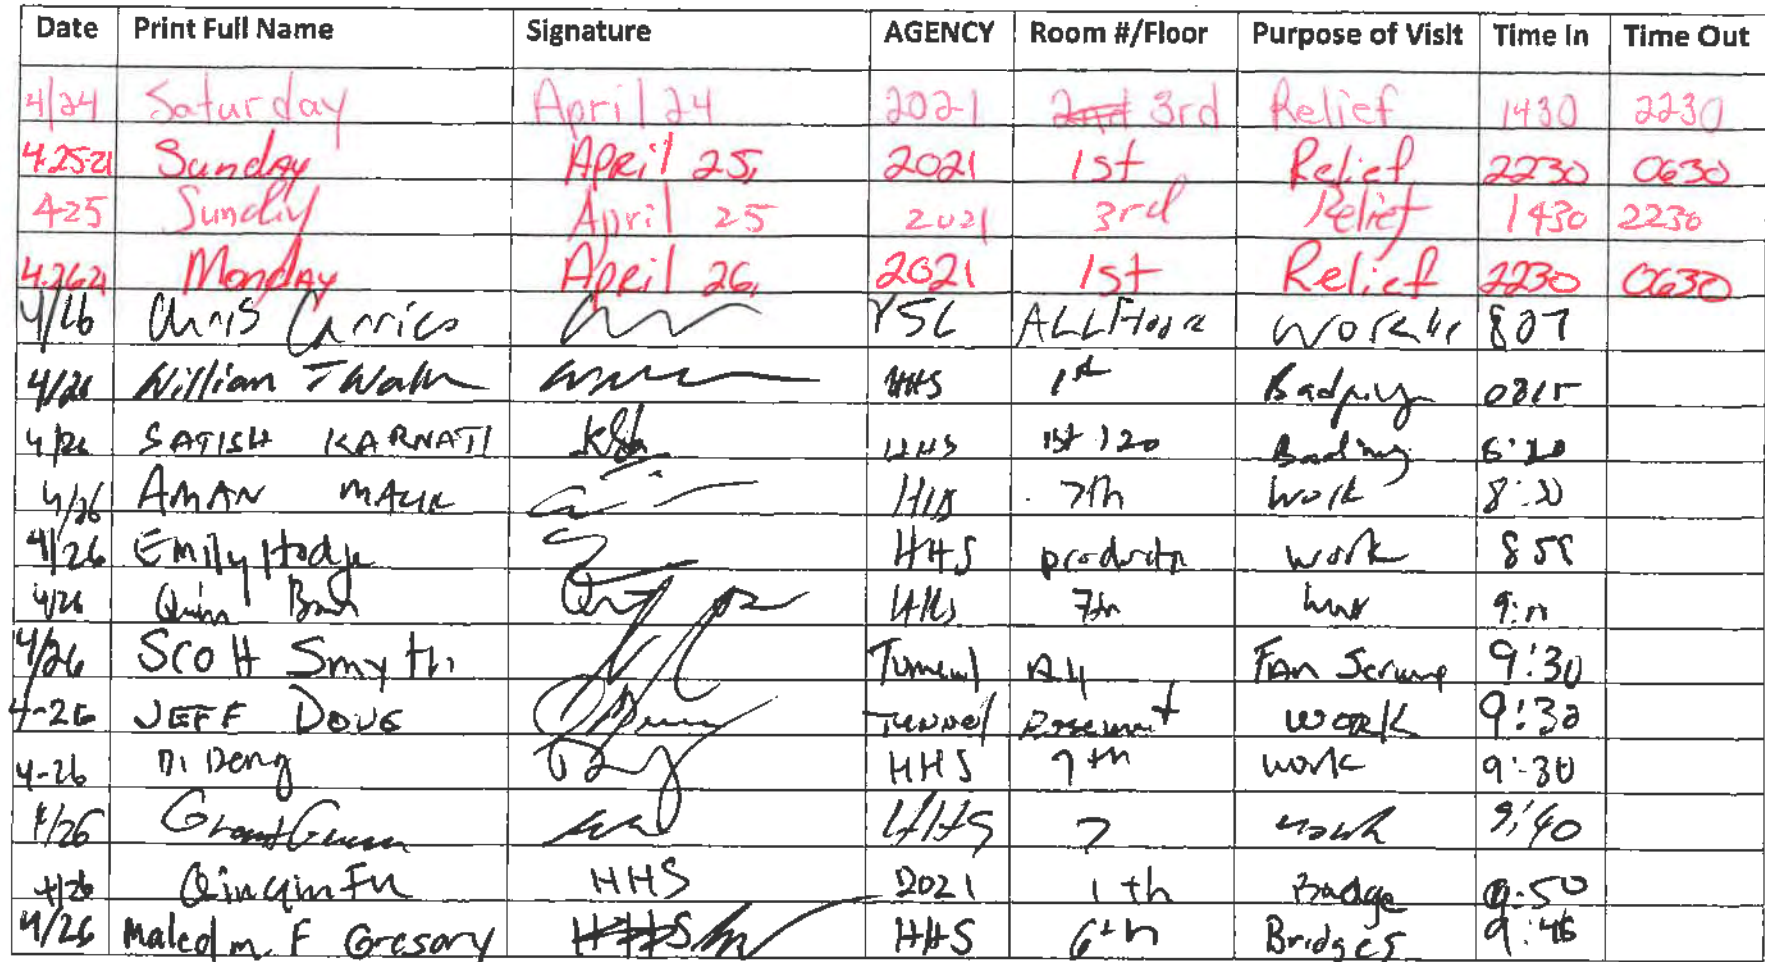 Date Print Full Name Signature AGENCY Room #/Floor Purpose of Visit Time In Time Out
4/24 Saturday April 24 2021 2nd 3rd Relief 1430 2230
4.25-21 Sunday April 25, 2021 1st Relief 2230 0630
4-25 Sunday April 25 2021 3rd Relief 1430 2230
4.26.21 Monday April 26, 2021 1st Relief 2230 0630
4/26 Chris Carrico ALL Floor 807
4/26 William T HHS 1st 0815
4/26 SATISH KARNATI HHS 1st 120
4/26 AMAN MALIK 7th Work 8:30
4/26 Emily Hodge HHS work
4/26 Quinn 7th
4/26 Scott Smyth Tunnel All Fan 9:30
4-26 JEFF DOVE Tunnel WORK 9:30
4-26 Di Deng HHS 7th work 9:30
4/26 Grant HHS 7 work 9:40
4/26 Qinqin Fu HHS 2021 1th Badge 9:50
4/26 Malcolm F Gregory HHS HHS 6th Bridges 9:46